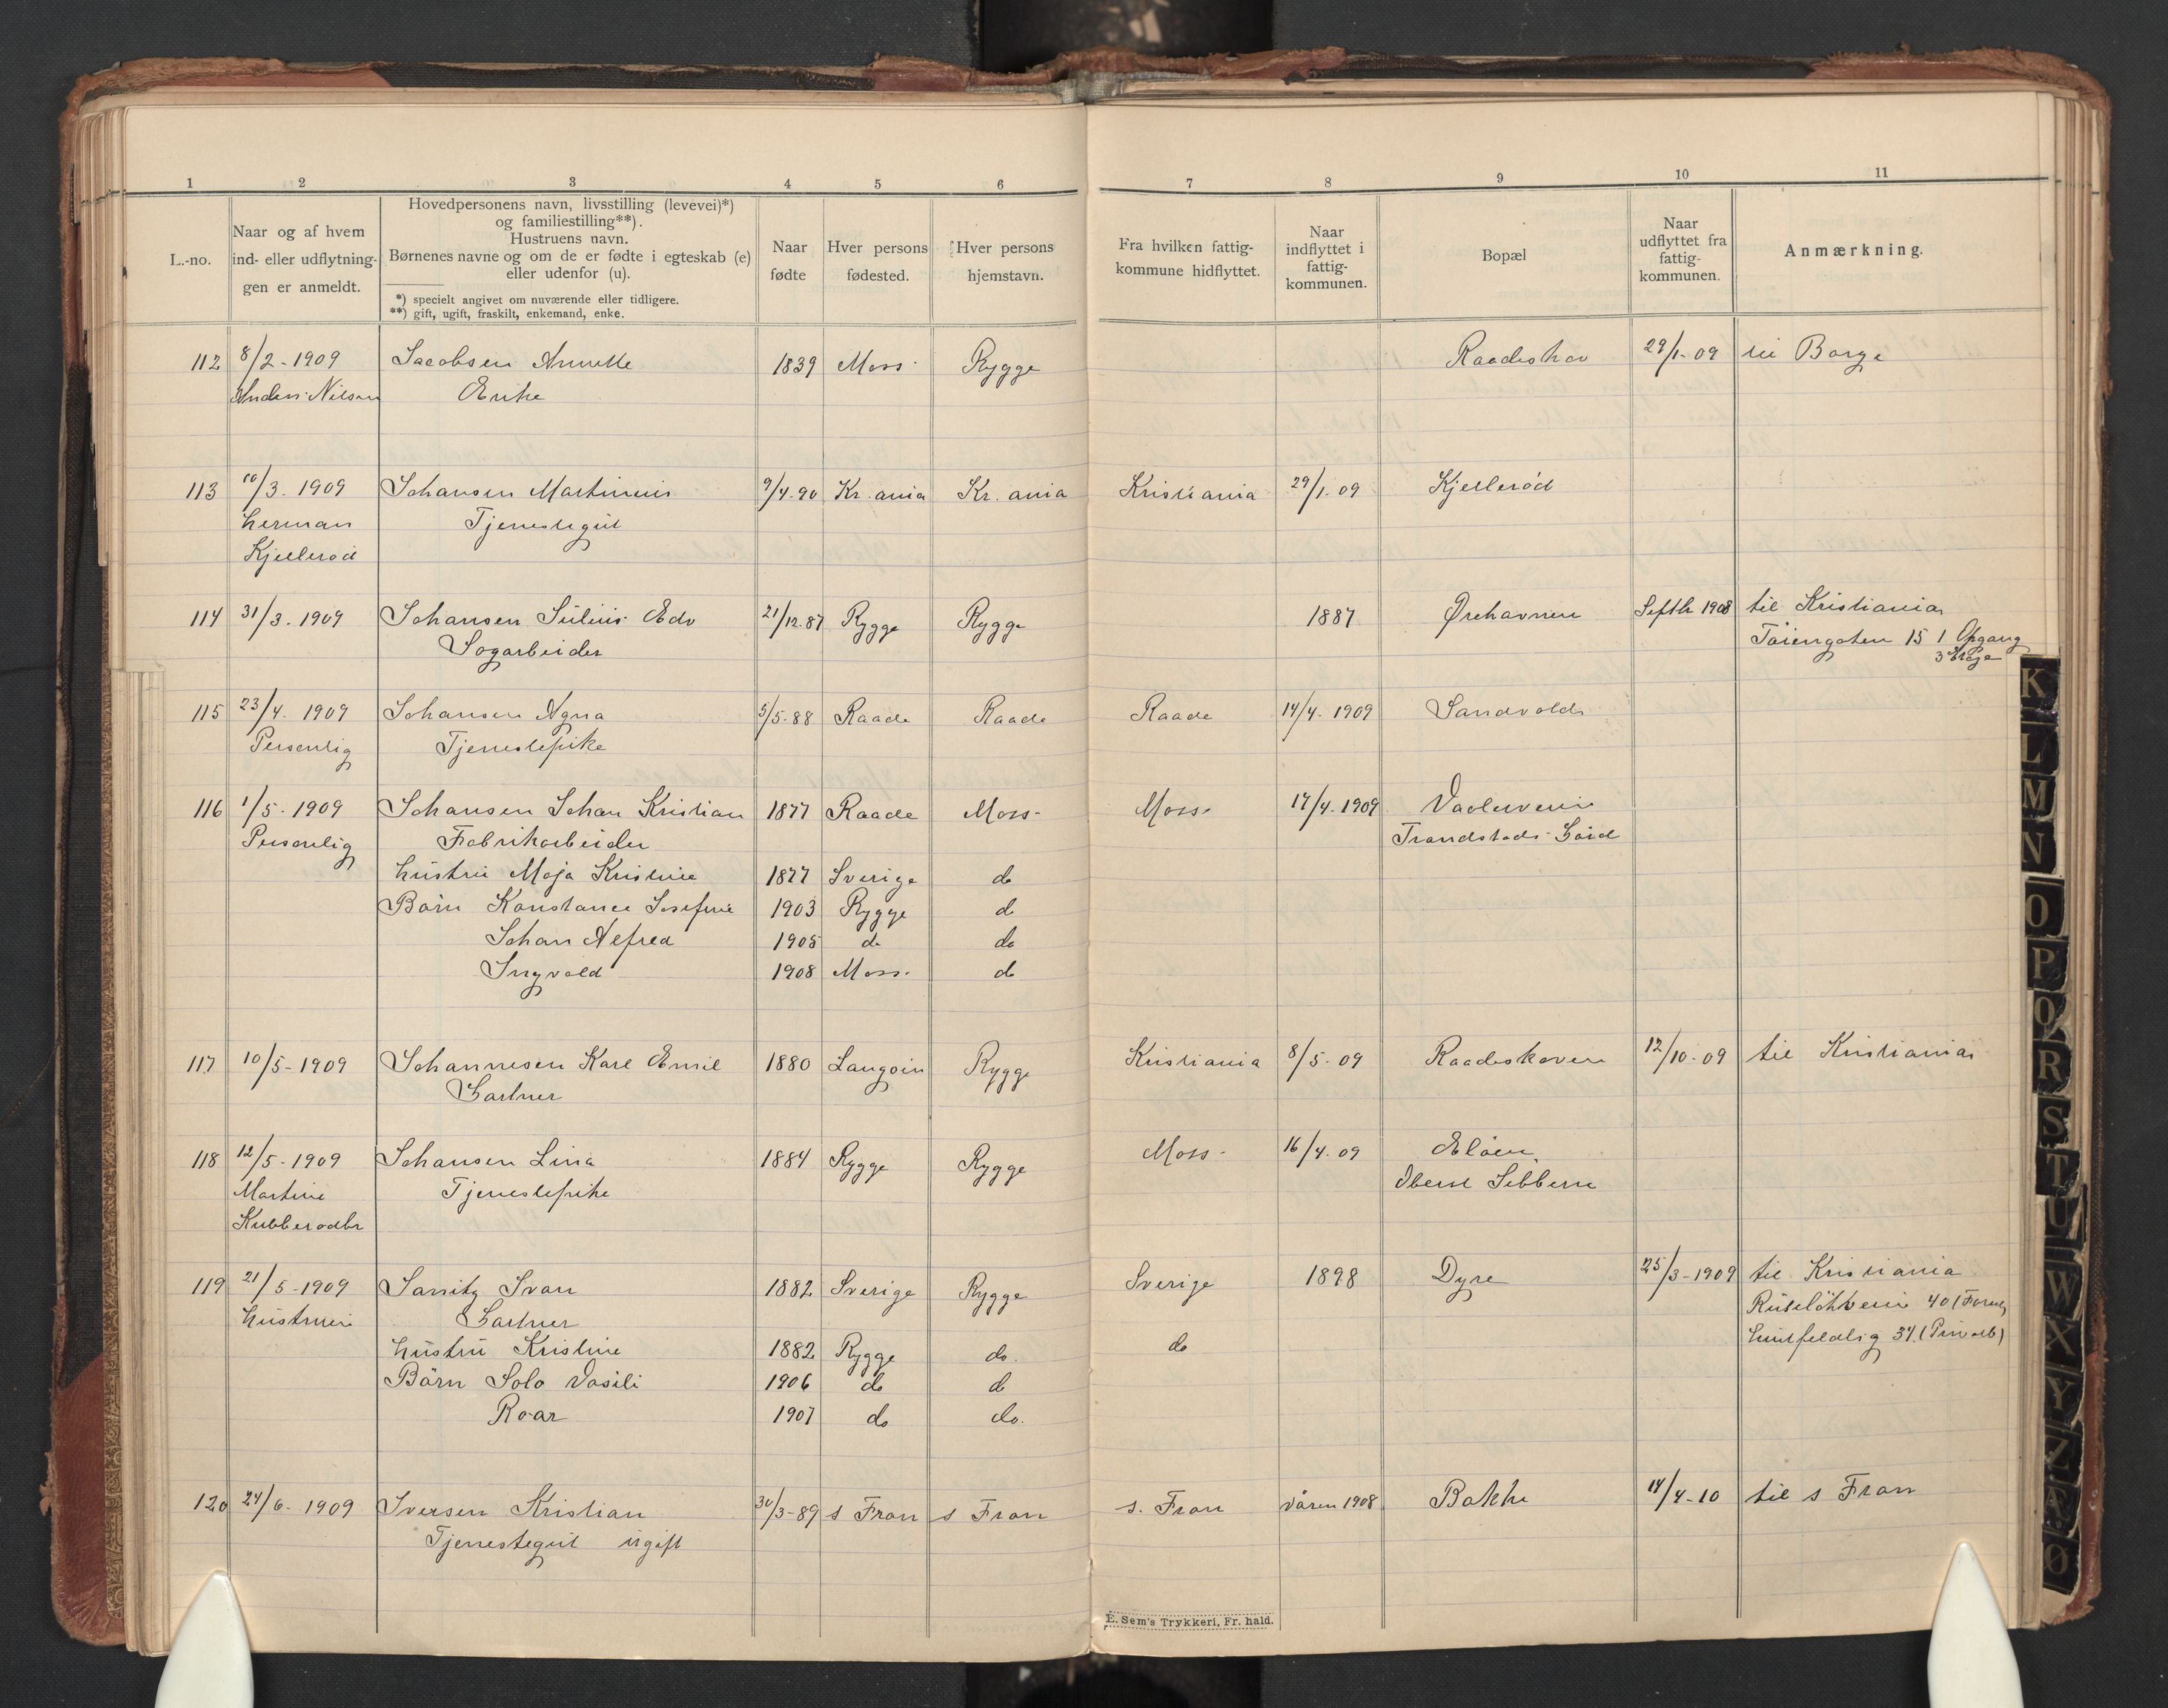 1 2 3 4 5 6 7 8 9 10 11
L.-no.
Naar og af hvem
ind- eller udflytnin-
gen er anmeldt.
Hovedpersonens navn, livsstilling (levevei)*)
og familiestilling**).
Hustruens navn.
Børnenes navne og om de er fødte i egteskab (e)
eller udenfor (u).
*) specielt angivet om nuværende eller tidligere.
**) gift, ugift, fraskilt, enkemand, enke.
Naar
fødte
Hver persons
fødested.
Hver persons
hjemstavn.
Fra hvilken fattig-
kommune hidflyttet.
Naar
indflyttet i
fattig-
kommunen.
Bopæl
Naar
udflyttet fra
fattig-
kommunen.
Anmærkning.
112 8/2-1909 Jacobsen Annette 1839 Moss Rygge Raadeskov 29/1-09 til Borge
Anders Nilsen Enke
113 10/3-1909 Johansen Martinius 9/4-90 Kr.ania Kr.ania Kristiania 29/1-09 Kjellerød
Herman Tjenestegut
Kjellerød
114 31/3-1909 Johansen Julius Edv 21/12-87 Rygge Rygge 1887 Ørehavnen Septb 1908 til Kristiania
Sogarbeider Tøiengaten 15 1 Opgang
3 Etage
115 23/4-1909 Johansen Agna 5/5-88 Raade Raade Raade 14/4-1909 Sandvold
Personlig Tjenestepike
116 1/5-1909 Johansen Johan Kristian 1877 Raade Moss Moss 17/4-1909 Vaaleveien
Personlig Fabrikarbeider Trandstads Gård
Hustru Maja Kristine 1877 Sverige do
Børn Konstance Josefine 1903 Rygge do
Johan Alfred 1905 do do
Ingvald 1908 Moss do
117 10/5-1909 Johannesen Karl Emil 1880 Langøin Rygge Kristiania 8/5-09 Raadeskoven 12/10-09 til Kristiania
Gartner
118 12/5-1909 Johansen Lina 1884 Rygge Rygge Moss 16/4-09 Eløen
Martine Tjenestepike Oberst Sibbern
Kubberødbr
119 21/5-1909 Janitz Ivan 1882 Sverige Rygge Sverige 1898 Dyre 25/3-1909 til Kristiania
Hustruen Gartner 40
Hustru Kristine 1882 Rygge do do 34
Børn Solo Vasili 1906 do do
Roar 1907 do do
120 24/6-1909 Iversen Kristian 30/3-89 s Fron s Fron s. Fron våren 1908 Bakke 14/4-10 til s Fron
Tjenestegut ugift
E. Sem's Trykkeri, Fr. hald.
K
L
M
N
O
P
Q
R
S
T
U
W
X
Y
Z
Æ
Ø